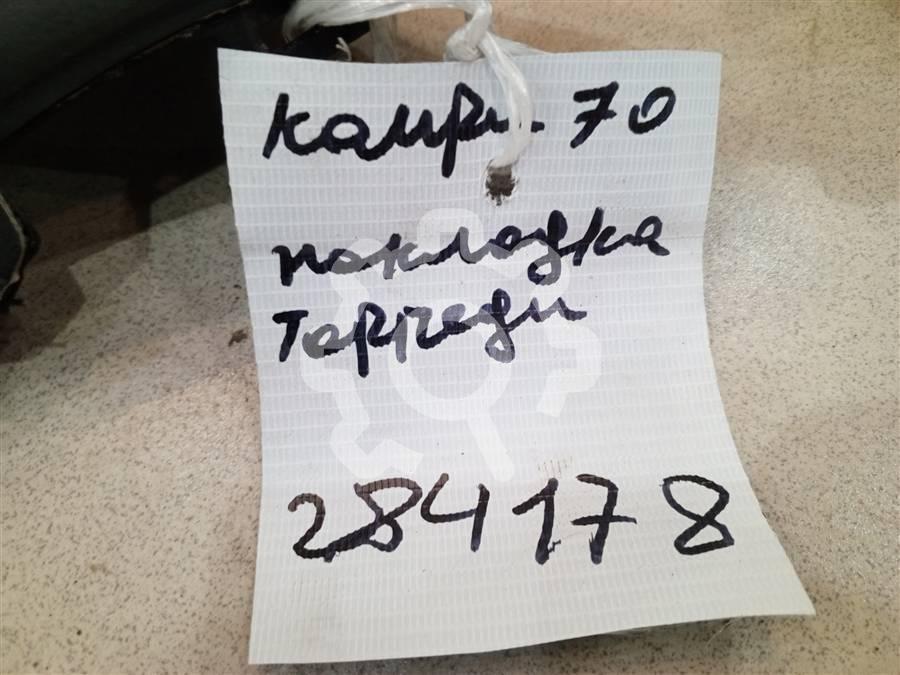 Камри 70
накладка
Торпеды
284178